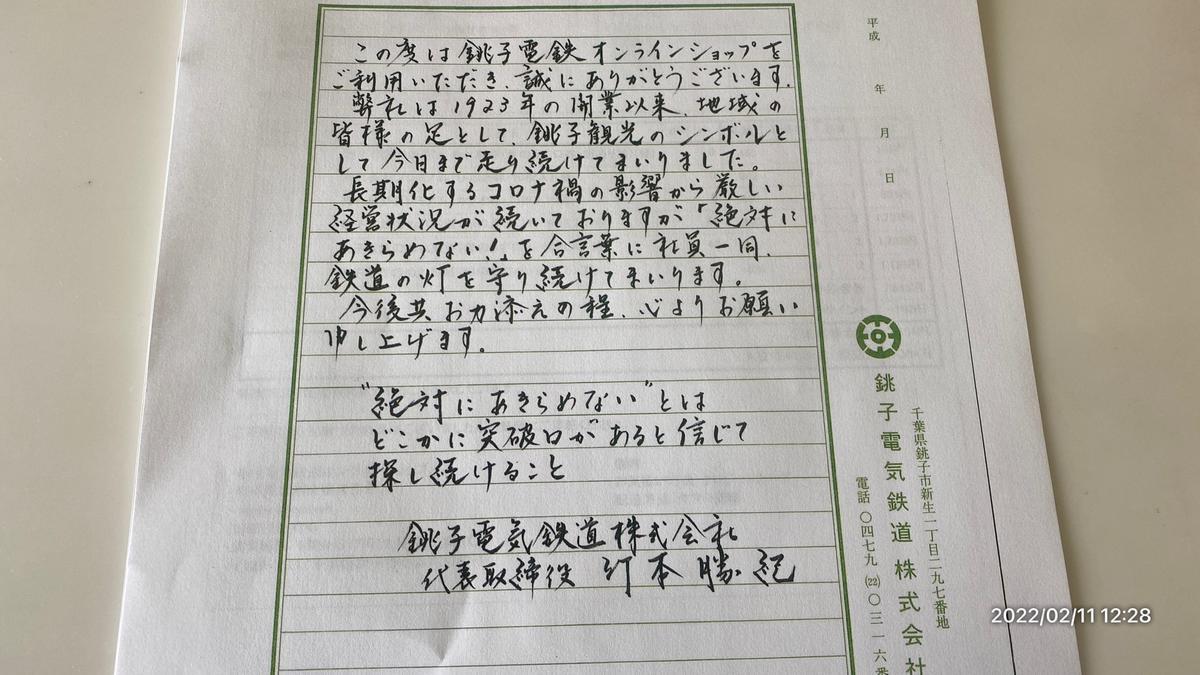 この度は銚子電鉄オンラインショップを
ご利用いただき、誠にありがとうございます。
弊社は1923年の開業以来、地域の
皆様の足として、銚子観光のシンボルと
して今日まで走り続けてまいりました。
長期化するコロナ禍の影響から厳しい
経営状況が続いておりますが「絶対に
あきらめない！」を合言葉に社員一同、
鉄道の灯を守り続けてまいります。
今後共お力添えの程、心よりお願い
申し上げます。
"絶対にあきらめない"とは
どこかに突破口があると信じて
探し続けること
銚子電気鉄道株式会社
代表取締役 竹本勝紀
平成 年 月 日
千葉県銚子市新生一丁目二九七番地
銚子電気鉄道株式会社
電話〇四七九(22)〇三一六番
2022/02/11 12:28